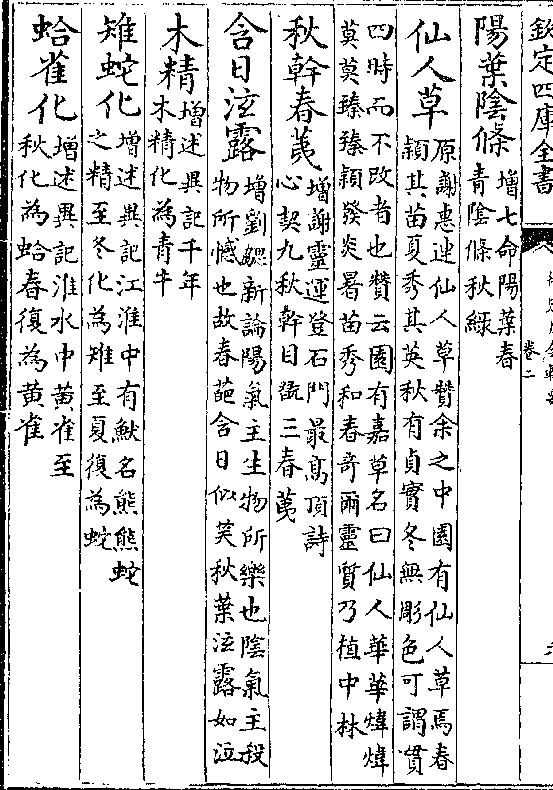 欽定四庫全書
卷二
陽葉陰條
增七命陽葉春
青陰條秋綠
仙人草
原謝惠連仙人草贊余之中園有仙人草焉春
穎其苗夏秀其英秋有貞實冬無彫色可謂貫
四時而不改者也贊云園有嘉草名曰仙人華華煒煒
莫莫臻臻穎發炎暑苗秀和春奇爾靈質乃植中林
秋幹春荑
增謝靈運登石門最高頂詩
心契九秋幹目翫三春荑
含日泣露
增劉勰新論陽氣主生物所樂也陰氣主殺
物所憾也故春葩含日似笑秋葉泣露如泣
木精
增述異記千年
木精化為青牛
雉蛇化
增述異記江淮中有獸名熊熊蛇
之精至冬化為雉至夏復為蛇
蛤雀化
增述異記淮水中黄雀至
秋化為蛤春復為黄雀